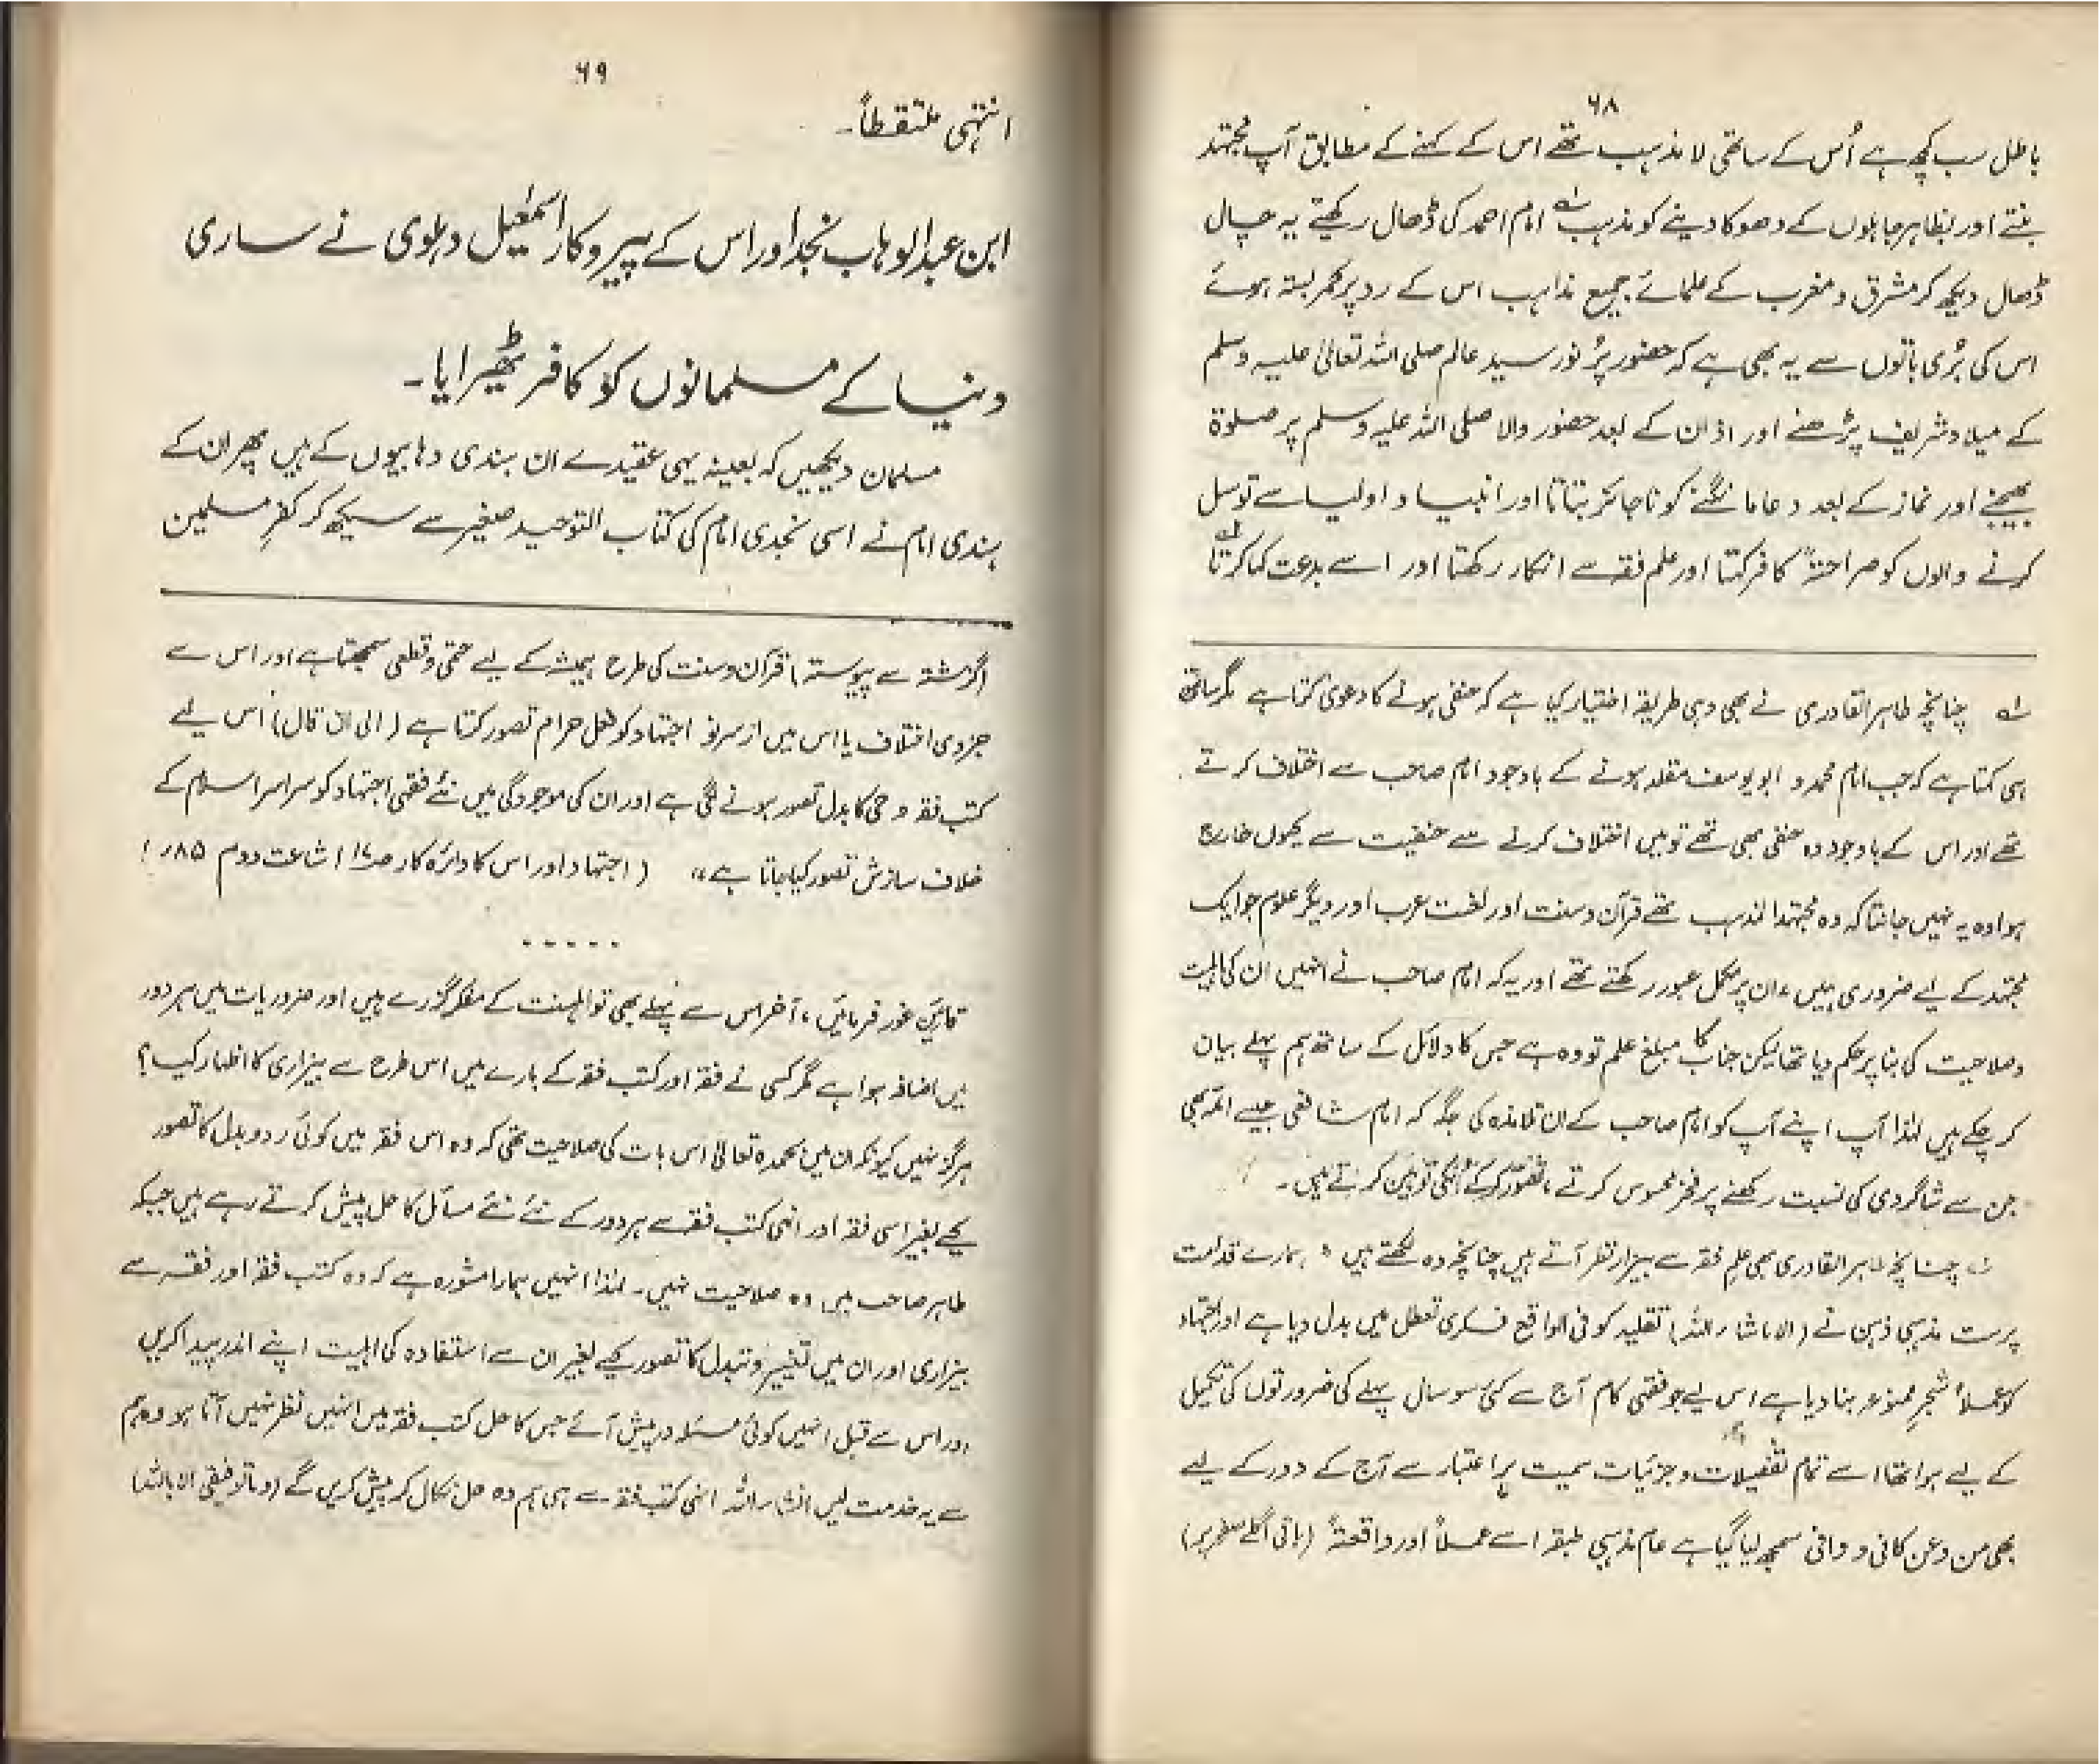 ۶۸
باطل سب کچھ ہے اُس کے ساتھی لا مذہب تھے اس کے کہنے کے مطابق آپ مجتہد
بنتے اور بظاہر جاہلوں کے دھوکا دینے کو مذہب امام احمد کی ڈھال رکھتے یہ چال
ڈھال دیکھ کر مشرق و مغرب کے علمائے جمیع مذاہب اس کے رد پر کمر بستہ ہوئے
اس کی بُری باتوں سے یہ بھی ہے کہ حضور پُر نور سید عالم صلی اللہ تعالیٰ علیہ وسلم
کے میلاد شریف پڑھنے اور اذان کے بعد حضور والا صلی اللہ علیہ وسلم پر صلوۃ
بھیجنے اور نماز کے بعد دعا مانگنے کو ناجائز بتاتا اور انبیاء و اولیاء سے توسل
کرنے والوں کو صراحتہً کافر کہتا اور علم فقہ سے انکار رکھتا اور اسے بدعت کہا کرتا
چنانچہ طاہر القادری نے بھی وہی طریقہ اختیار کیا ہے کہ حنفی ہونے کا دعویٰ کرتا ہے مگر ساتھ
ہی کہتا ہے کہ جب امام محمد و ابو یوسف مقلد ہونے کے باوجود امام صاحب سے اختلاف کرتے
تھے اور اس کے باوجود وہ حنفی بھی تھے تو میں اختلاف کرنے سے حنفیت سے کیوں خارج
ہوا وہ یہ نہیں جانتا کہ وہ مجتہد المذہب تھے قرآن و سنت اور لغت عرب اور دیگر علوم جو ایک
مجتہد کے لیے ضروری ہیں، ان پر مکمل عبور رکھتے تھے اور یہ کہ امام صاحب نے انہیں ان کی اہلیت
و صلاحیت کی بنا پر حکم دیا تھا لیکن جناب کا مبلغ علم تو وہ ہے جس کا دلائل کے ساتھ ہم پہلے بیان
کر چکے ہیں لہٰذا آپ اپنے آپ کو امام صاحب کے ان تلامذہ کی جگہ کہ امام شافعی جیسے ائمہ بھی
جن سے شاگردی کی نسبت رکھنے پر فخر محسوس کرتے، تصور کر کے اُنکی توہین کرتے ہیں۔
چنانچہ طاہر القادری بھی علم فقہ سے بیزار نظر آتے ہیں چنانچہ وہ لکھتے ہیں " ہمارے قدامت
پرست مذہبی ذہن نے (الا ماشاء اللہ) تقلید کو فی الواقع فکری تعطل میں بدل دیا ہے اور اجتہاد
کو عملاً شجر ممنوعہ بنا دیا ہے اس لیے جو فقہی کام آج سے کئی سو سال پہلے کی ضرورتوں کی تکمیل
کے لیے ہوا تھا اسے تمام تفصیلات و جزئیات سمیت ہر اعتبار سے آج کے دور کے لیے
بھی من و عن کافی و وافی سمجھ لیا گیا ہے عام مذہبی طبقہ اسے عملاً اور واقعتہً (باقی اگلے صفحہ پر)
۶۹
انتہی ملتقطاً۔
ابن عبدالوہاب نجد اور اس کے پیروکار اسمٰعیل دہلوی نے ساری
دنیا کے مسلمانوں کو کافر ٹھیرایا۔
مسلمان دیکھیں کہ بعینہ یہی عقیدے ان ہندی وہابیوں کے ہیں پھر ان کے
ہندی امام نے اسی نجدی امام کی کتاب التوحید صغیر سے سیکھ کر کفرِ مسلمین
(گزشتہ سے پیوستہ) قرآن و سنت کی طرح ہمیشہ کے لیے حتمی و قطعی سمجھتا ہے اور اس سے
جزوی اختلاف یا اس میں از سر نو اجتہاد کو فعل حرام تصور کرتا ہے (الی ان قال) اس لیے
کتب فقہ وحی کا بدل تصور ہونے لگی ہے اور ان کی موجودگی میں نئے فقہی اجتہاد کو سراسر اسلام کے
خلاف سازش تصور کیا جاتا ہے" (اجتہاد اور اس کا دائرہ کار اشاعت دوم ۸۵ء)
.....
قارئین غور فرمائیں، آخر اس سے پہلے بھی تو اہلسنت کے مفکر گزرے ہیں اور ضروریات میں ہر دور
میں اضافہ ہوا ہے مگر کسی نے فقہ اور کتب فقہ کے بارے میں اس طرح سے بیزاری کا اظہار کیا؟
ہرگز نہیں کیونکہ ان میں بحمدہ تعالیٰ اس بات کی صلاحیت تھی کہ وہ اس فقہ میں کوئی رد و بدل کا تصور
کیے بغیر اسی فقہ اور انہی کتب فقہ سے ہر دور کے نئے نئے مسائل کا حل پیش کرتے رہے ہیں جبکہ
طاہر صاحب میں وہ صلاحیت نہیں۔ لہٰذا انہیں ہمارا مشورہ ہے کہ وہ کتب فقہ اور فقہ سے
بیزاری اور ان میں تغییر و تبدل کا تصور کیے بغیر ان سے استفادہ کی اہلیت اپنے اندر پیدا کریں
اور اس سے قبل انہیں کوئی مسئلہ درپیش آئے جس کا حل کتب فقہ میں انہیں نظر نہیں آتا ہو وہ ہم
سے یہ خدمت لیں انشاء اللہ انہی کتب فقہ سے ہی ہم وہ حل نکال کر پیش کریں گے (وما توفیقی الا باللہ)